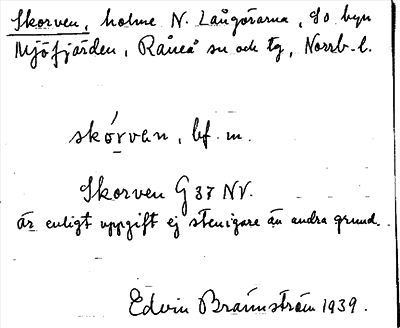 Skorven, holme N. Långörarna, SO byn
Mjöfjärden, Råneå sn och tg, Norrb. l.
skórvan, bf. m.
Skorven G 37 NV.
är enligt uppgift ej stenigare än andra grund.
Edvin Brännström 1939.